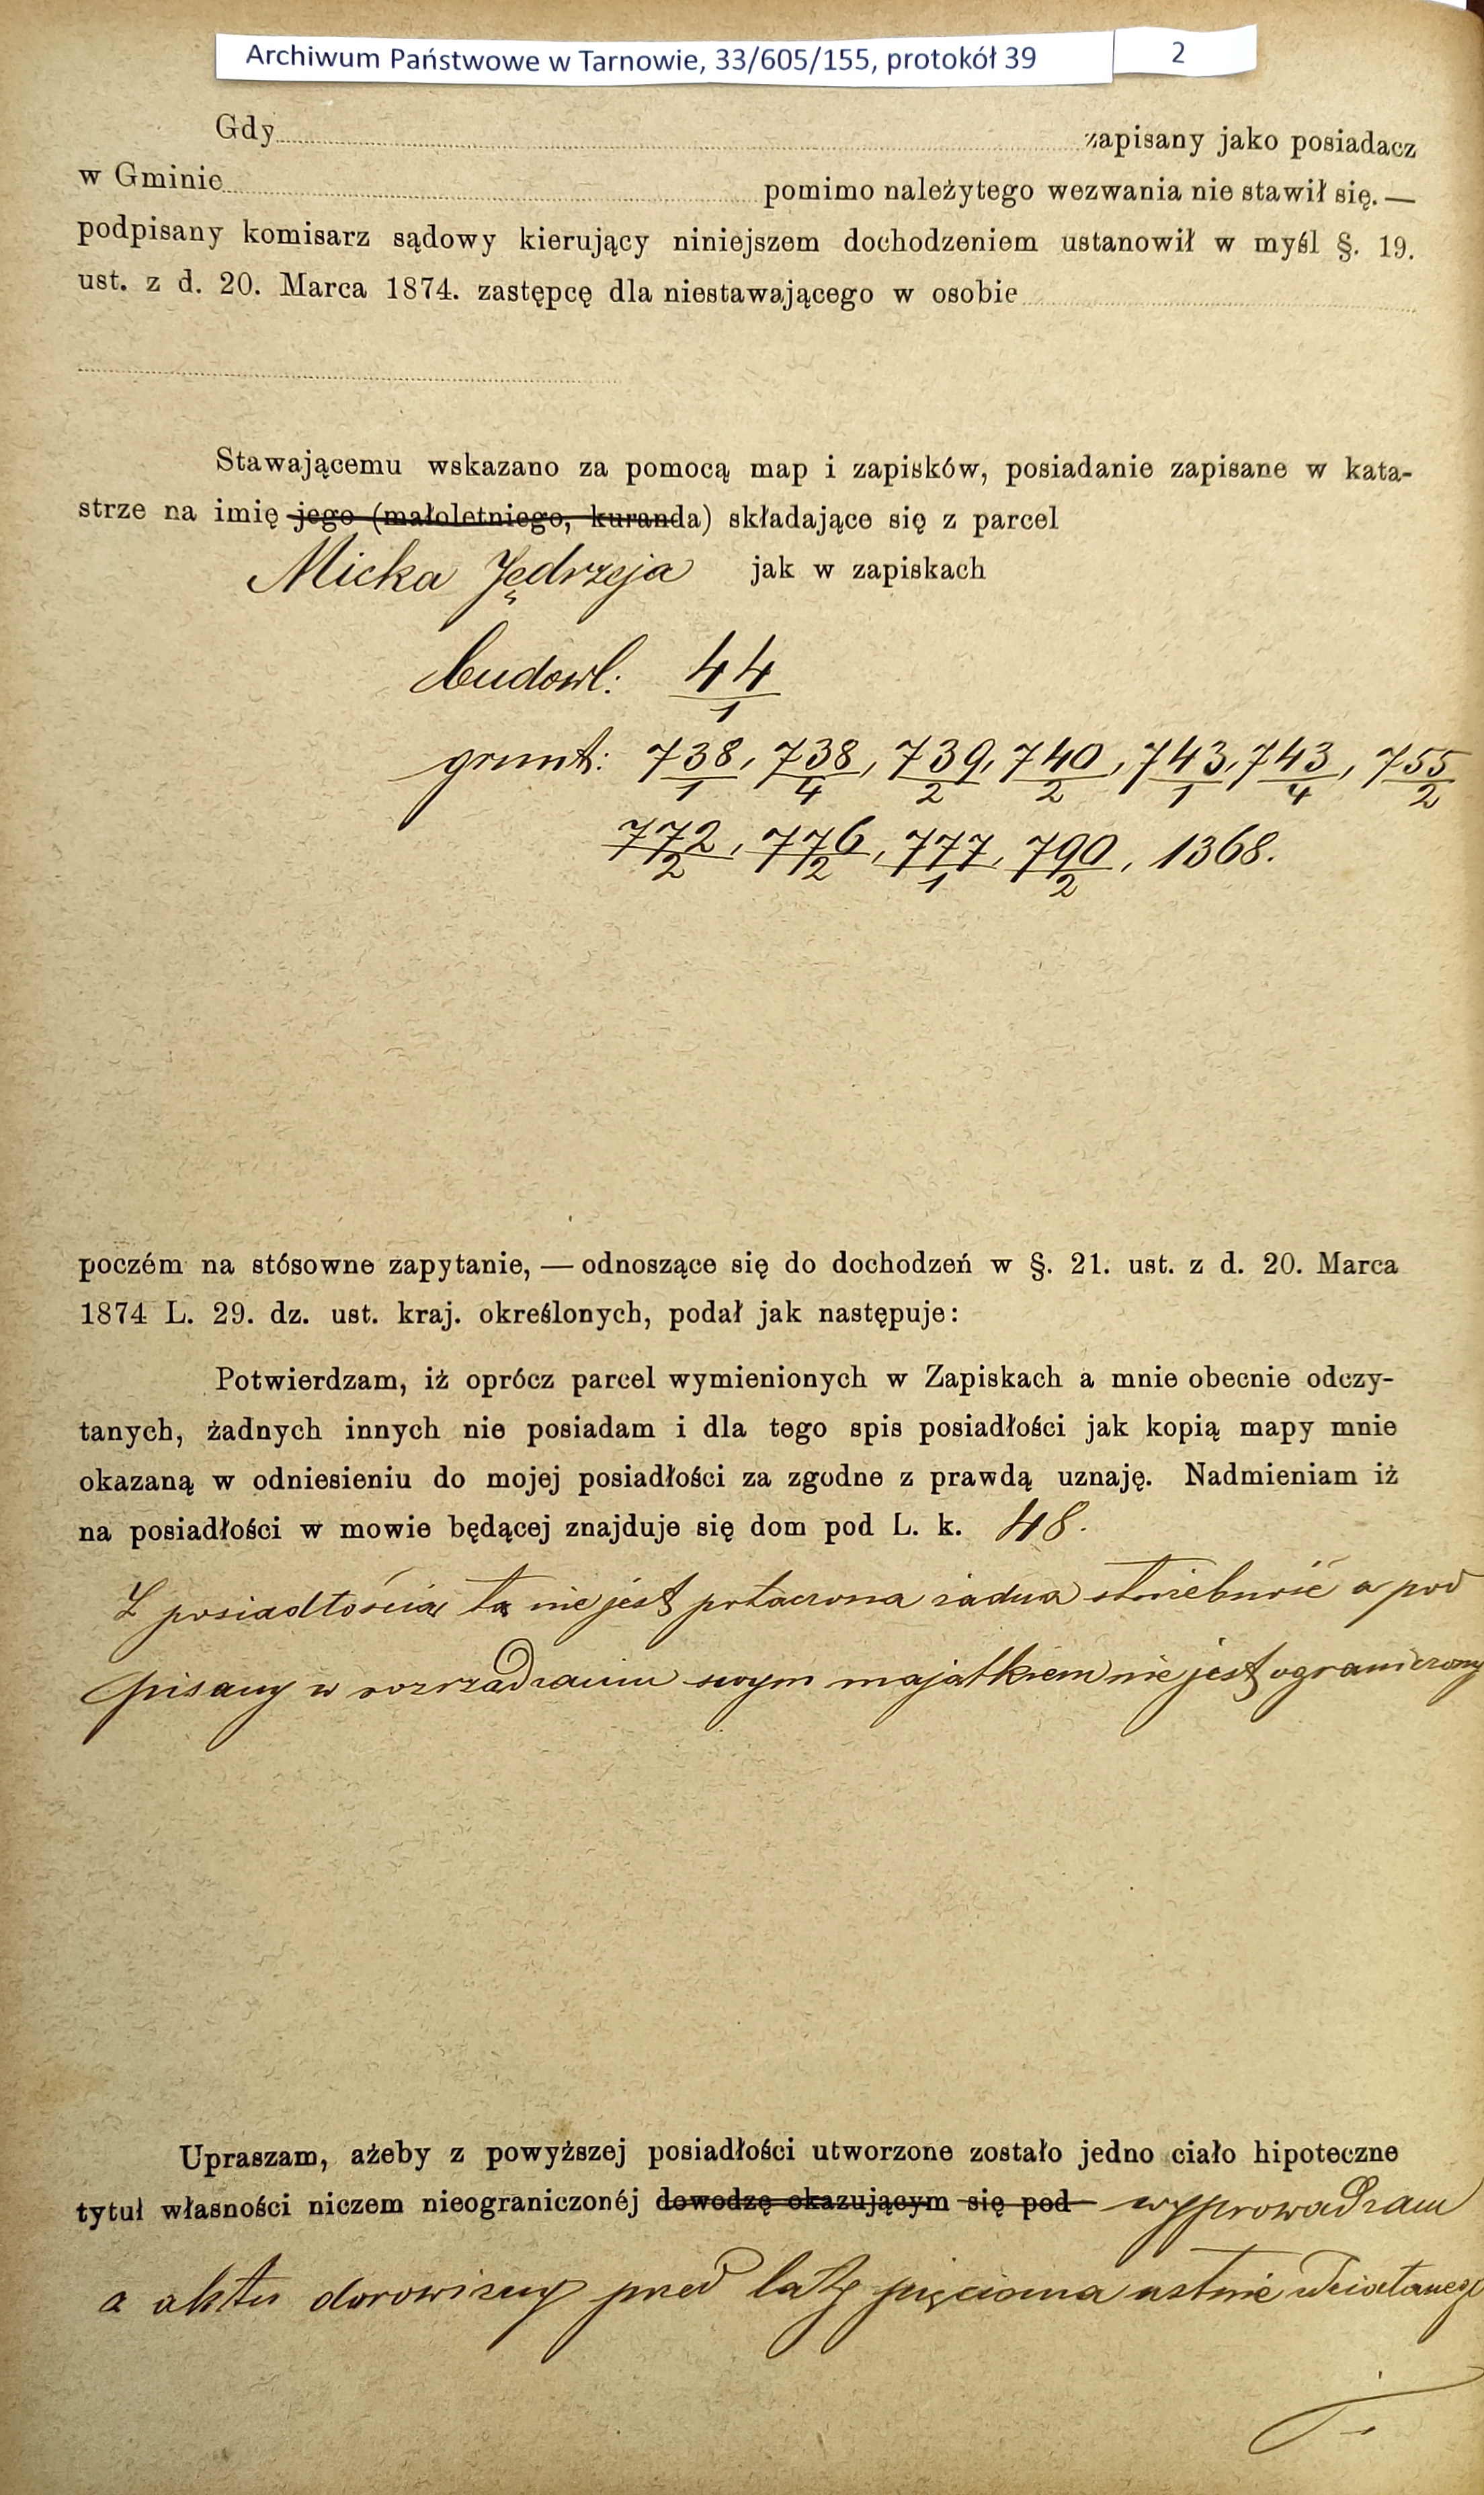 Archiwum Państwowe w Tarnowie, 33/605/155, protokół 39 2
Gdy zapisany jako posiadacz
w Gminie pomimo należytego wezwania nie stawił się. —
podpisany komisarz sądowy kierujący niniejszem dochodzeniem ustanowił w myśl §. 19.
ust. z d. 20. Marca 1874. zastępcę dla niestawającego w osobie
Stawającemu wskazano za pomocą map i zapisków, posiadanie zapisane w kata-
strze na imię jego (małoletniego, kuranda) składające się z parcel
Micka Jędrzeja jak w zapiskach
budowl: 44/1
grunt: 738/1, 738/4, 739/2, 740/2, 743/1, 743/4, 755/2
772/2, 776/2, 777/1, 790/2, 1368.
poczém na stósowne zapytanie, — odnoszące się do dochodzeń w §. 21. ust. z d. 20. Marca
1874 L. 29. dz. ust. kraj. określonych, podał jak następuje:
Potwierdzam, iż oprócz parcel wymienionych w Zapiskach a mnie obecnie odczy-
tanych, żadnych innych nie posiadam i dla tego spis posiadłości jak kopią mapy mnie
okazaną w odniesieniu do mojej posiadłości za zgodne z prawdą uznaję. Nadmieniam iż
na posiadłości w mowie będącej znajduje się dom pod L. k. 48.
Z posiadłością tą nie jest połączona żadna służebność a pod
pisany w rozrządzaniu swym majątkiem nie jest ograniczony
Upraszam, ażeby z powyższej posiadłości utworzone zostało jedno ciało hipoteczne
tytuł własności niczem nieograniczonéj dowodzę okazującym się pod wyprowadzam
z aktu darowizny przed laty pięcioma ustnie zdziałanego